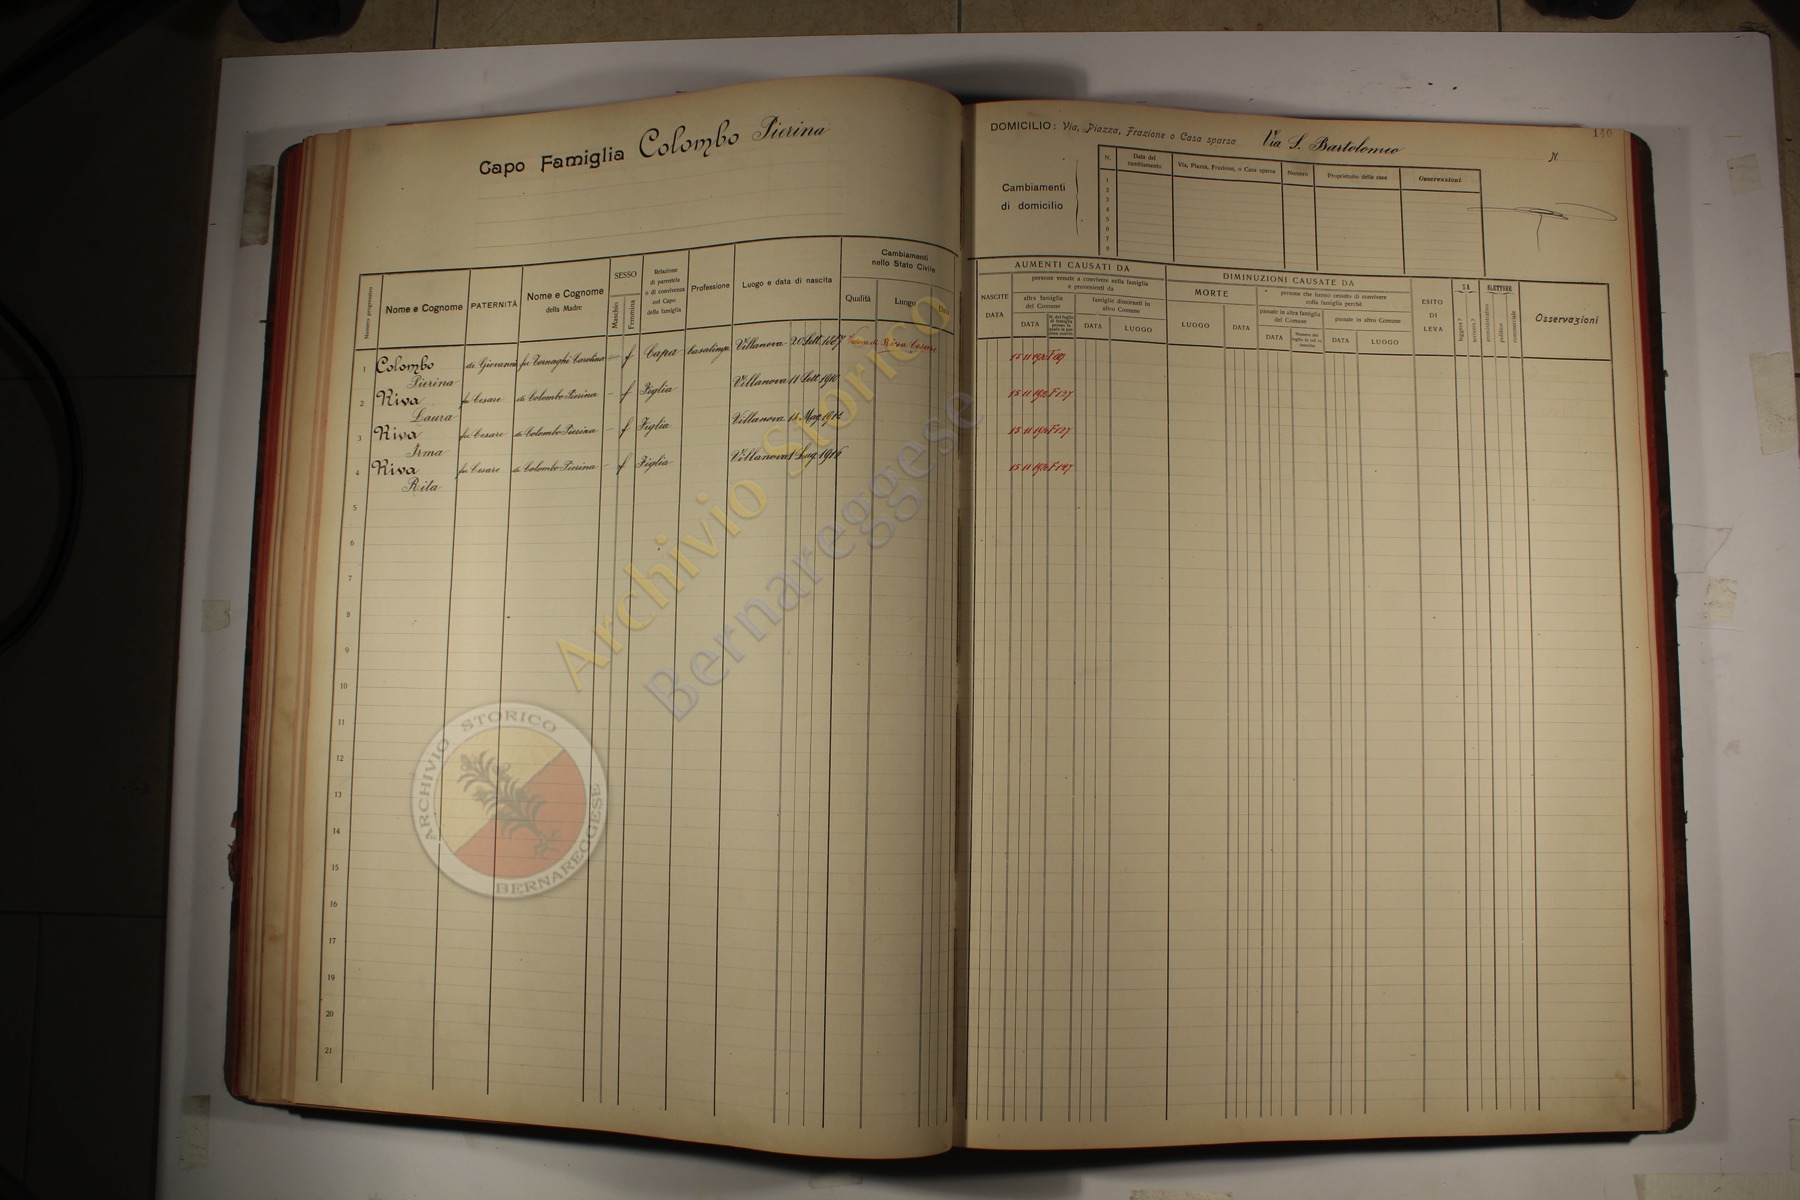 Capo Famiglia Colombo Pierina
Numero progressivo
Nome e Cognome
PATERNITÀ
Nome e Cognome
della Madre
SESSO
Maschio
Femmina
Relazione
di parentela
o di convivenza
col Capo
della famiglia
Professione
Luogo e data di nascita
Cambiamenti
nello Stato Civile
Qualità
Luogo
Data
1 Colombo Pierina di Giovanni fu Tornaghi Carolina - f Capa casalinga Villanova 20 Sett. 1887 Vedova di Riva Cesare
2 Riva Laura fu Cesare di Colombo Pierina - f Figlia Villanova 11 Sett 1910
3 Riva Irma fu Cesare di Colombo Pierina - f Figlia Villanova Mag. 1912
4 Riva Rita fu Cesare di Colombo Pierina - f Figlia Villanova 1 Lug. 1916
5
6
7
8
9
10
11
12
13
14
15
16
17
19
20
21
DOMICILIO: Via, Piazza, Frazione o Casa sparsa Via S. Bartolomeo N
140
Cambiamenti
di domicilio
N.
Data del
cambiamento
Via, Piazza, Frazione, o Casa sparsa
Numero
Proprietario della casa
Osservazioni
1
2
3
4
5
6
7
8
AUMENTI CAUSATI DA
NASCITE
DATA
persone venute a convivere nella famiglia
e provenienti da
altra famiglia
del Comune
DATA
famiglie dimoranti in
altro Comune
DATA
LUOGO
DIMINUZIONI CAUSATE DA
MORTE
LUOGO
DATA
persone che hanno cessato di convivere
colla famiglia perchè
passate in altra famiglia
del Comune
DATA
passate in altro Comune
DATA
LUOGO
ESITO
DI
LEVA
SA
leggere?
scrivere?
ELETTORE
amministrativo
politico
commerciale
Osservazioni
15 11
15 11
15 11
15 11
Archivio Storico
Bernareggese
ARCHIVIO STORICO
BERNAREGGESE